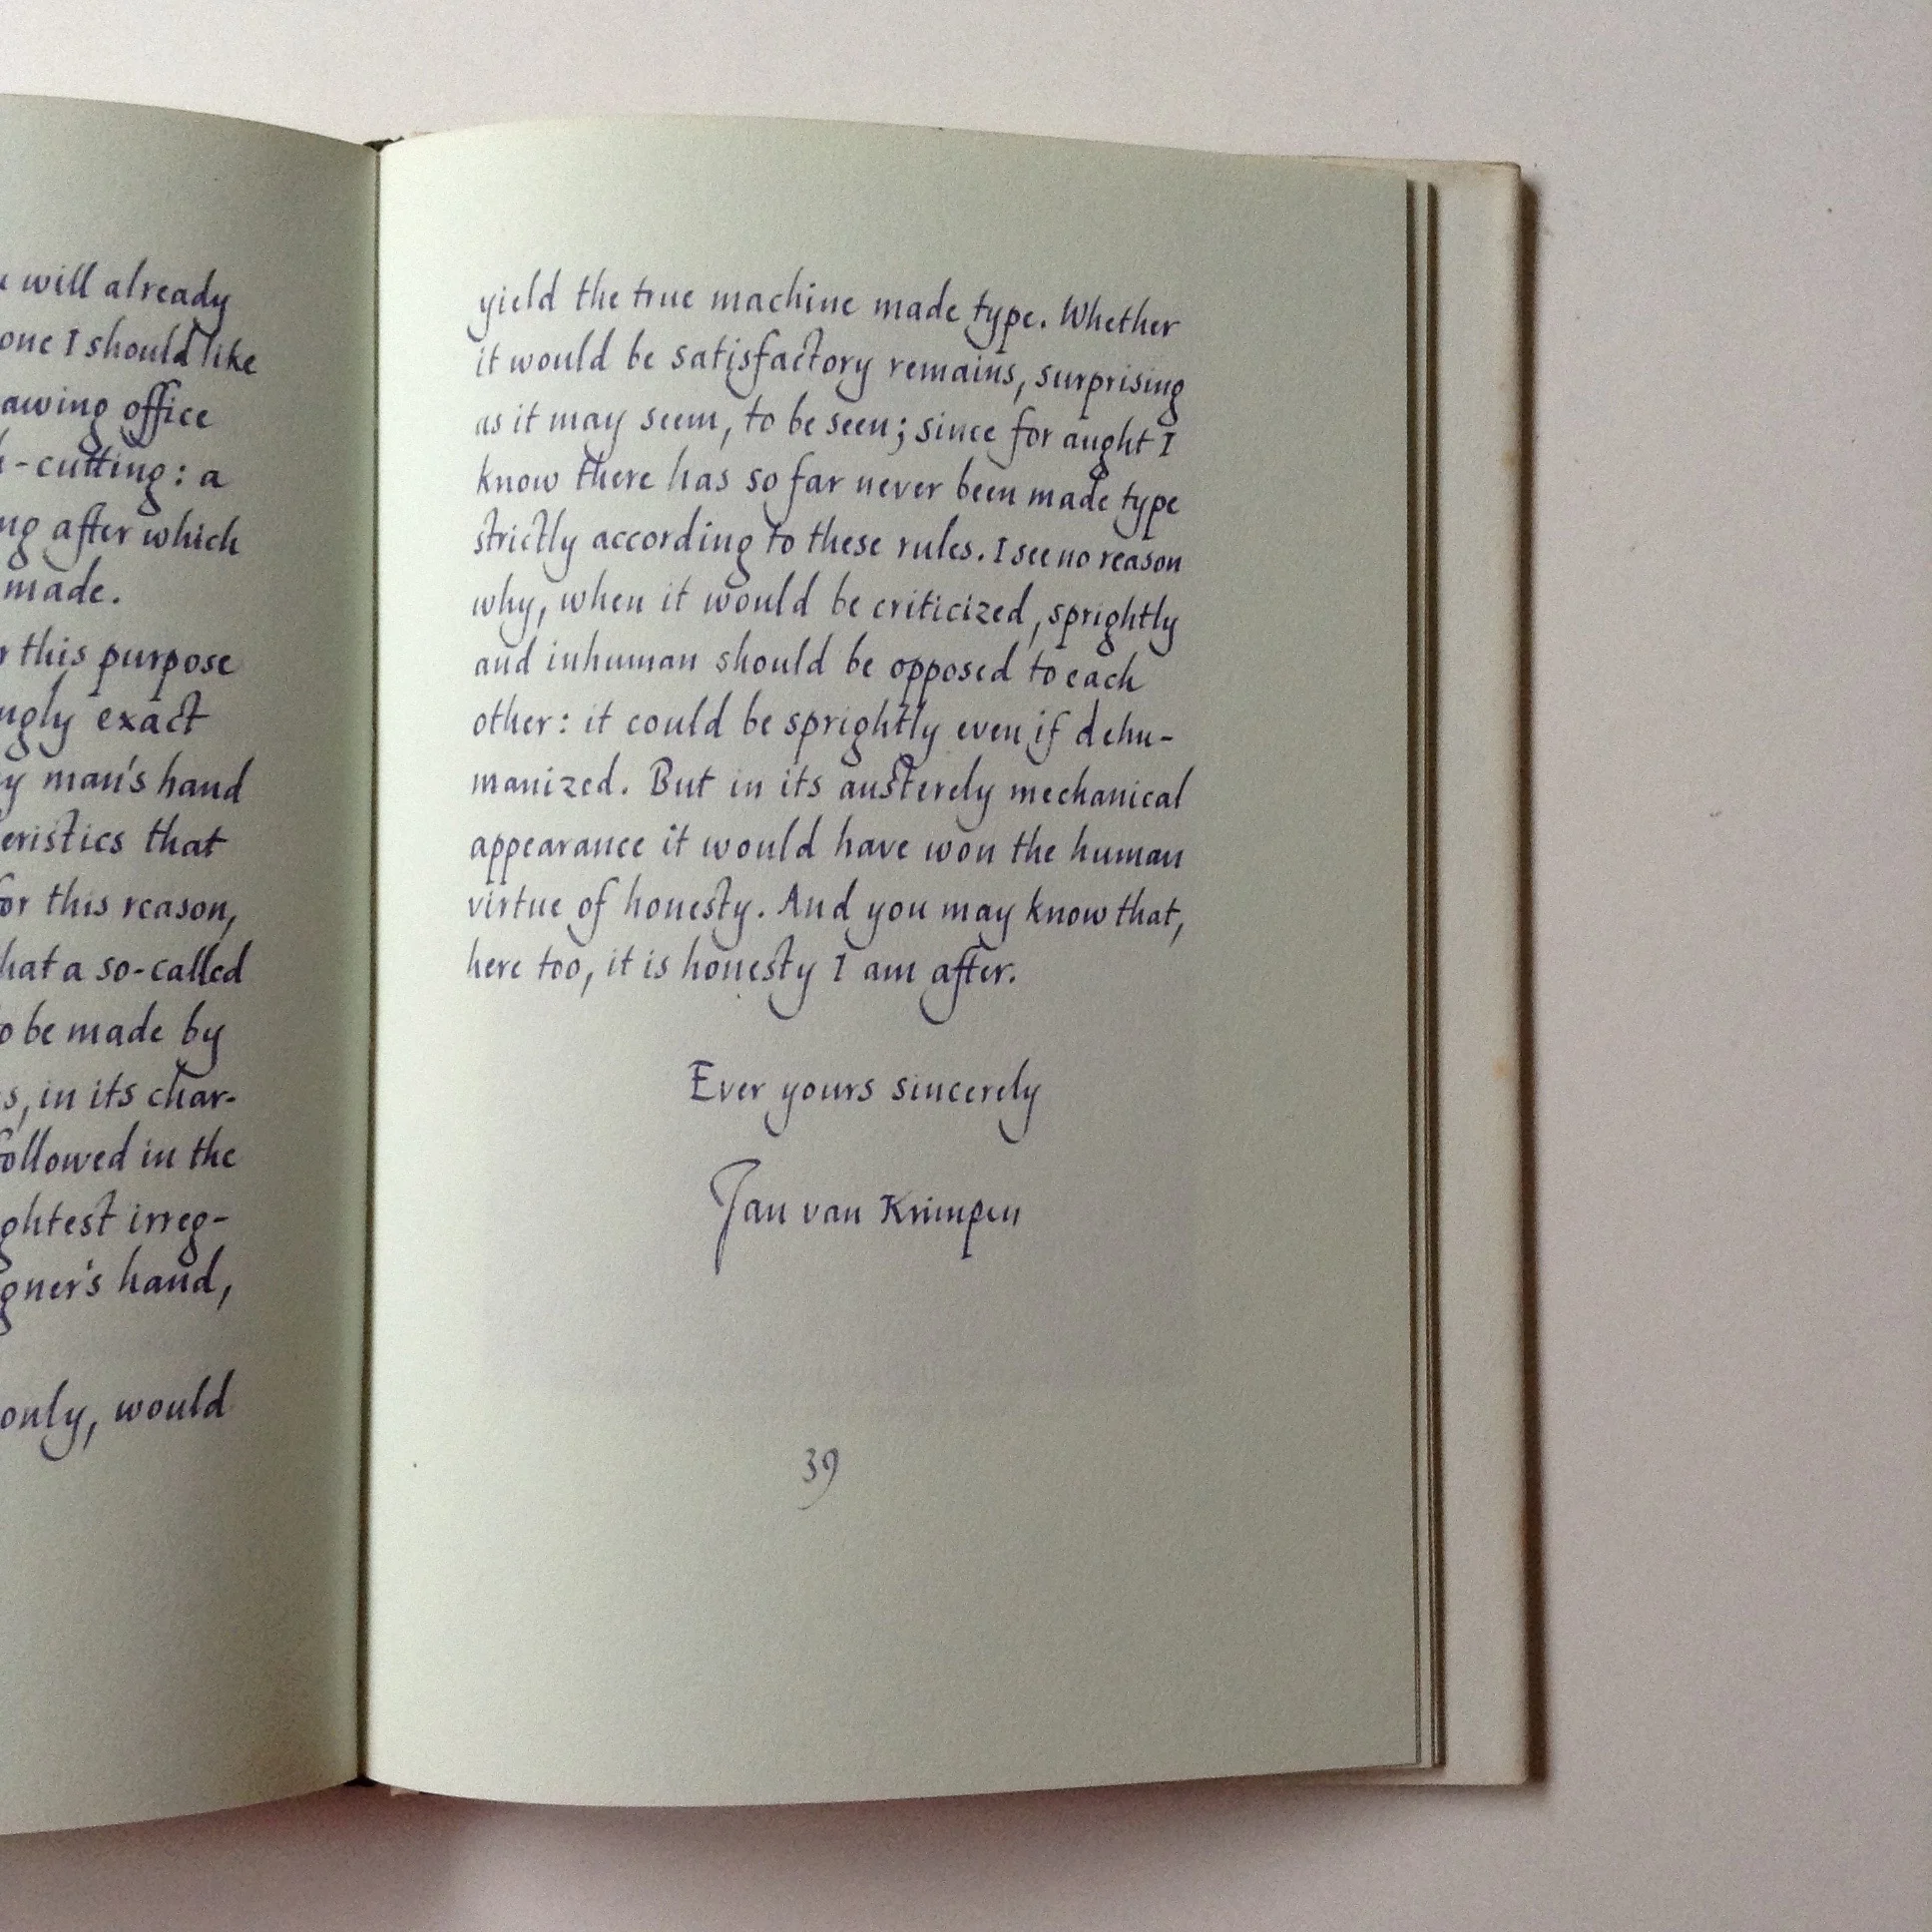 will already
one I should like
awing office
-cutting: a
ng after which
made.
r this purpose
ngly exact
y man's hand
eristics that
for this reason,
hat a so-called
o be made by
s, in its char-
followed in the
ghtest irreg-
gner's hand,
only, would
yield the true machine made type. Whether
it would be satisfactory remains, surprising
as it may seem, to be seen; since for aught I
know there has so far never been made type
strictly according to these rules. I see no reason
why, when it would be criticized, sprightly
and inhuman should be opposed to each
other: it could be sprightly even if dehu-
manized. But in its austerely mechanical
appearance it would have won the human
virtue of honesty. And you may know that,
here too, it is honesty I am after.
Ever yours sincerely
Jan van Krimpen
39